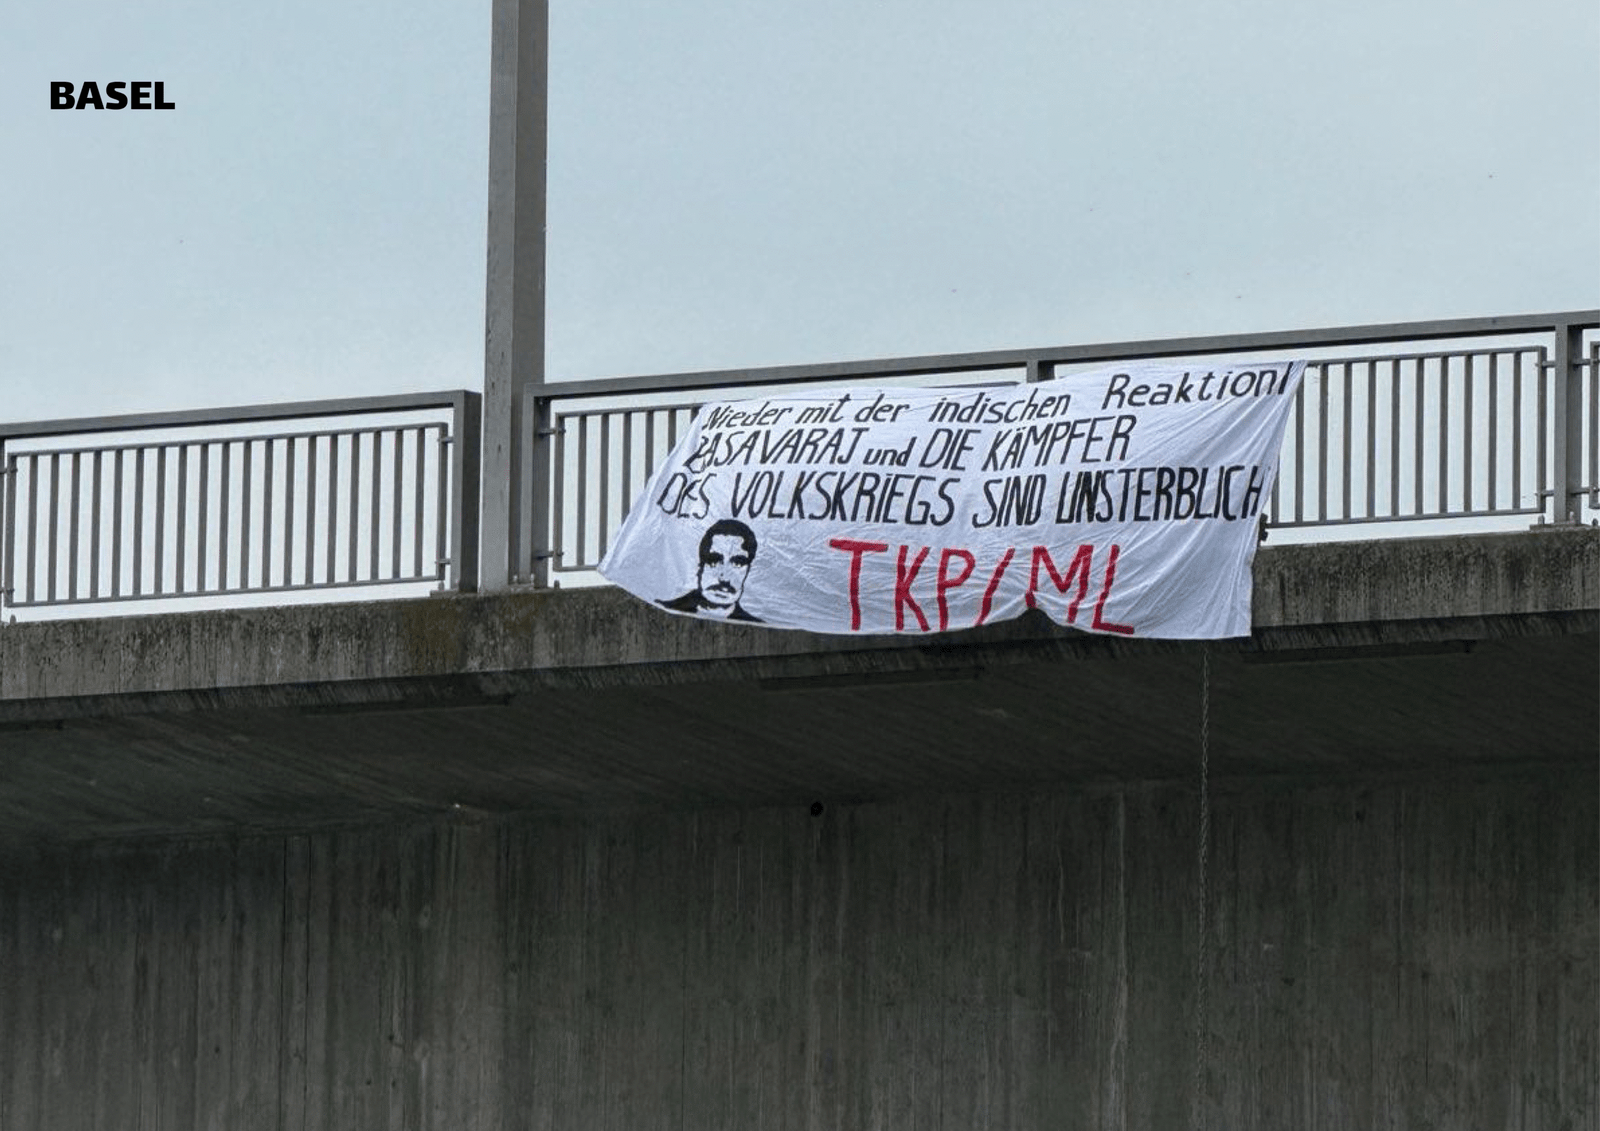 BASEL
Nieder mit der indischen Reaktion!
BASAVARAJ und DIE KÄMPFER
DES VOLKSKRiEGS SIND UNSTERBLICH
TKP/ML